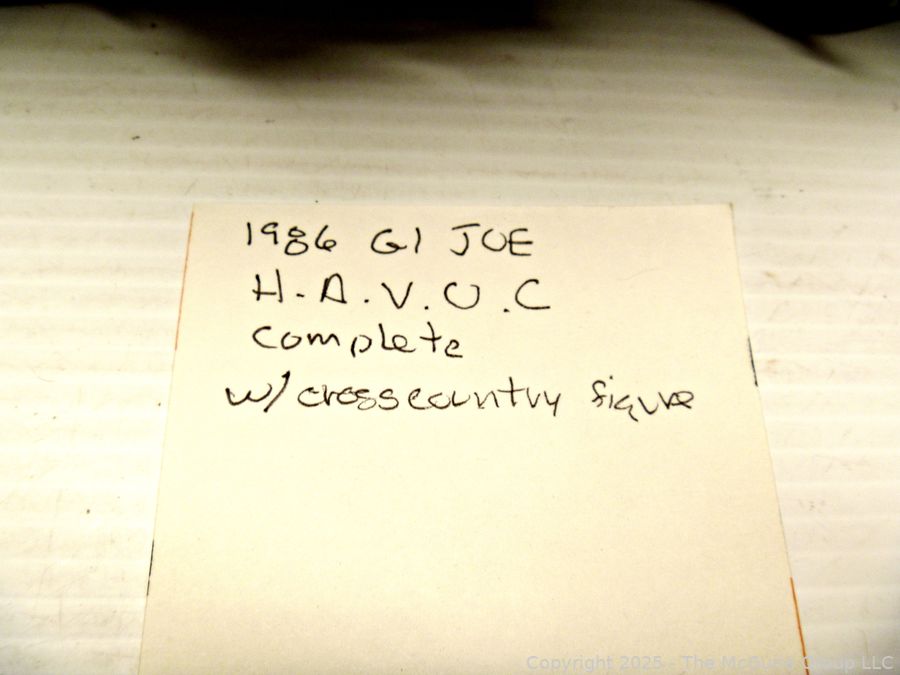 1986 GI JOE
H.A.V.O.C
complete
w/ crosscountry figure
Copyright 2025 - The McGuire Group LLC